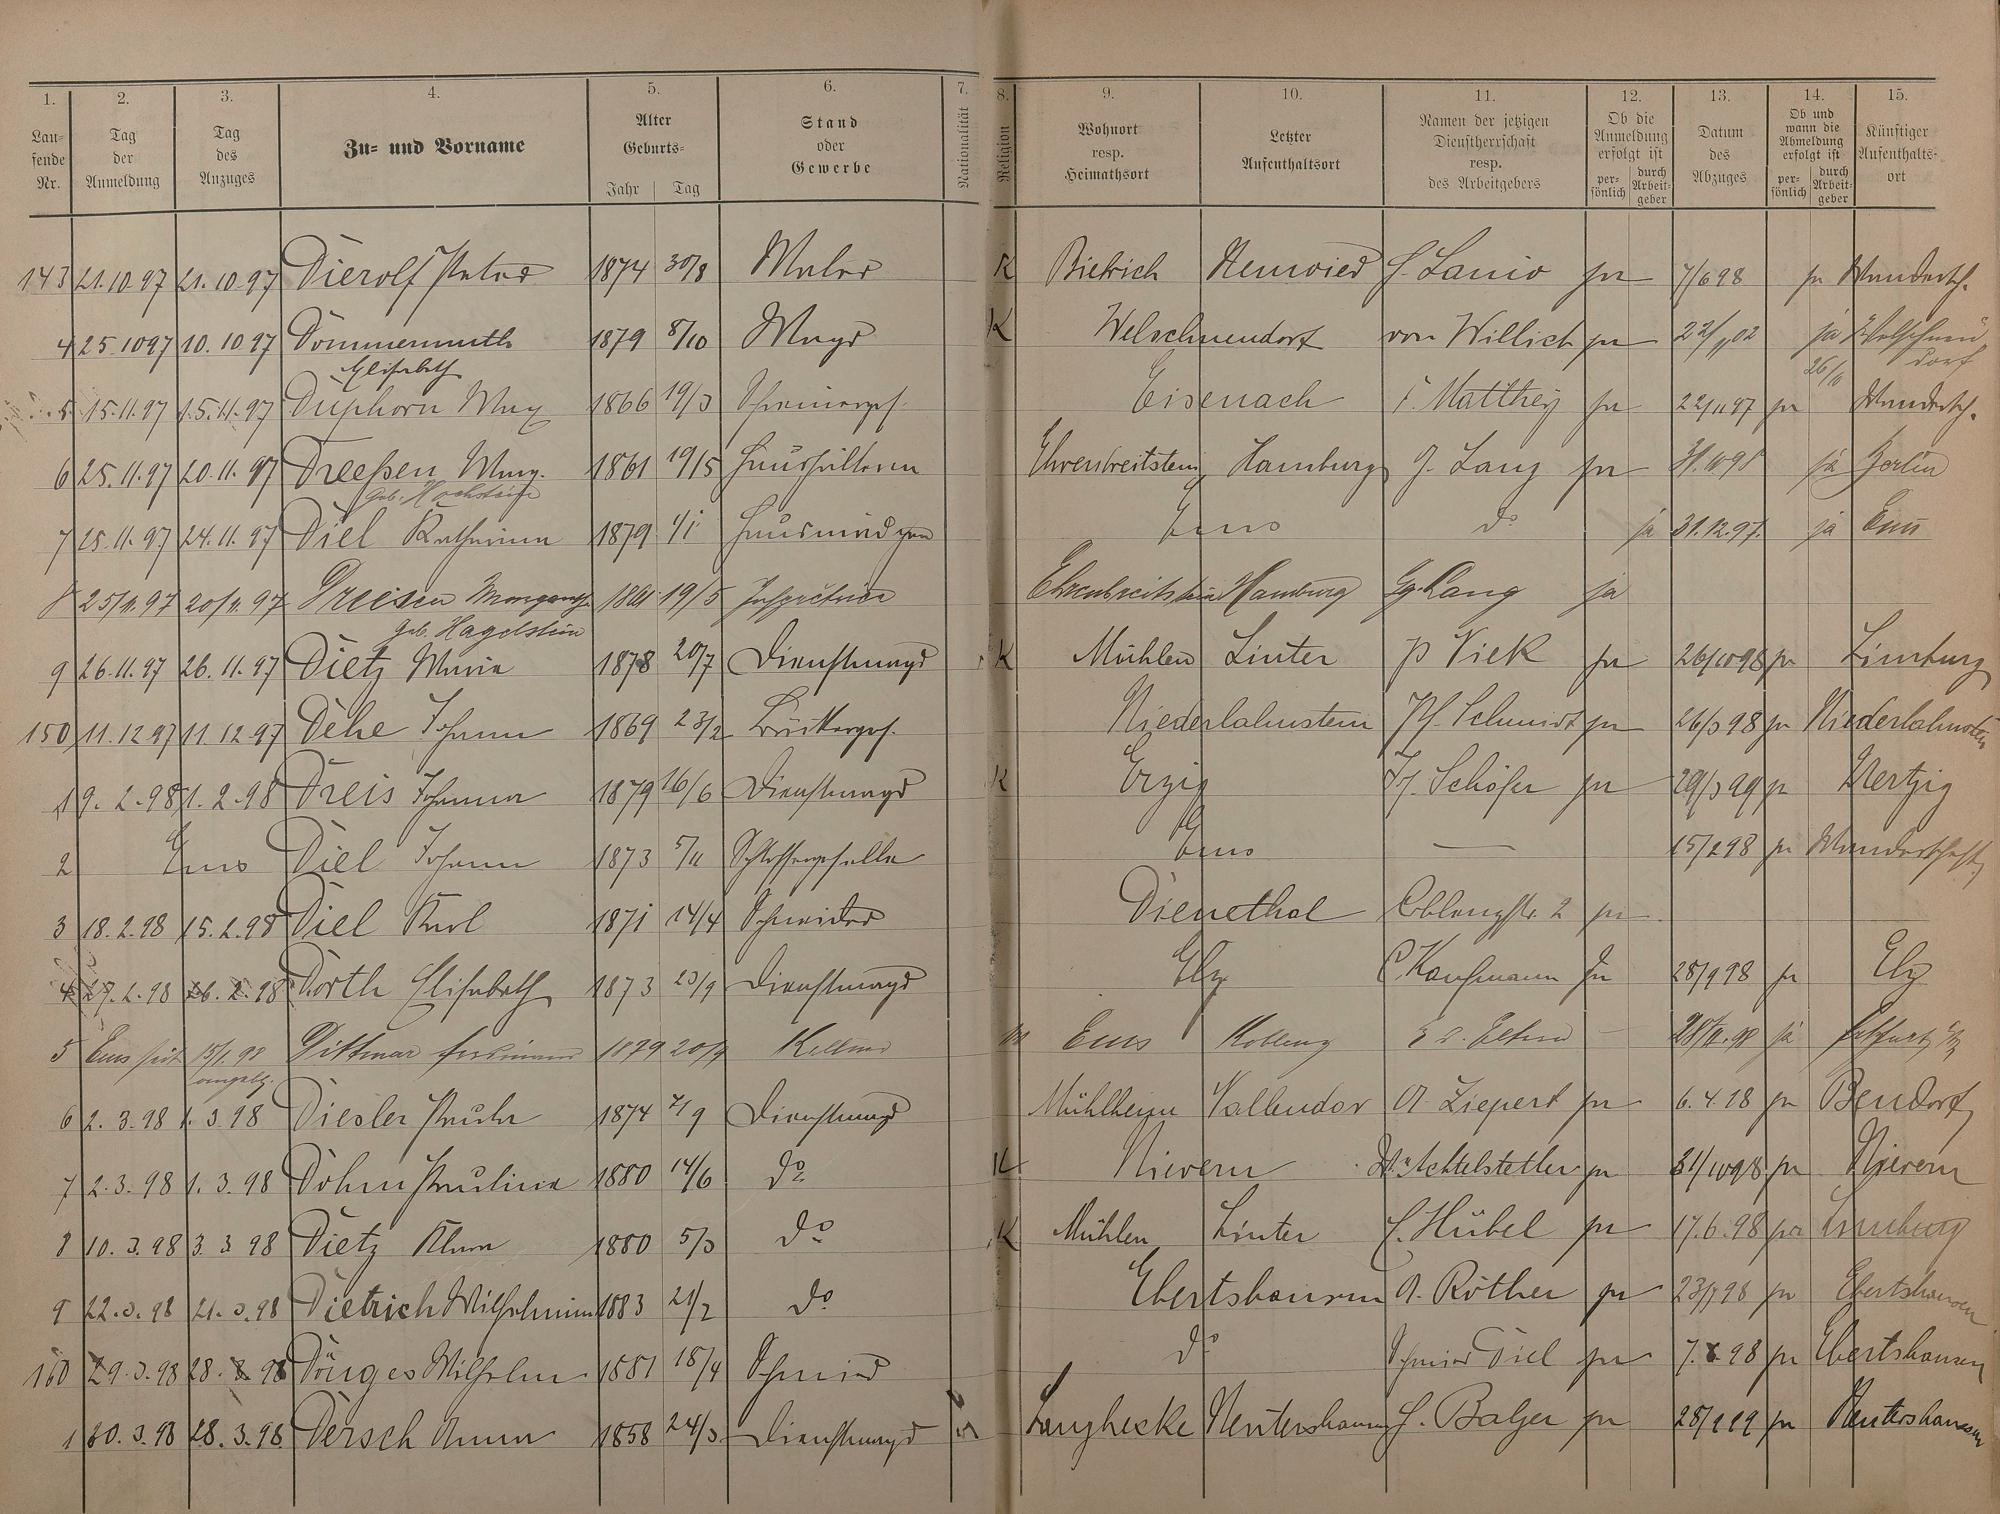 1. 2. 3. 4. 5. 6. 7. 8. 9. 10. 11. 12. 13. 14. 15.
Lau-
fende
Nr.
Tag
der
Anmeldung
Tag
des
Anzuges
Zu- und Vorname
Alter
Geburts-
Jahr Tag
Stand
oder
Gewerbe
Nationalität
Religion
Wohnort
resp.
Heimathsort
Letzter
Aufenthaltsort
Namen der jetzigen
Dienstherrschaft
resp.
des Arbeitgebers
Ob die
Anmeldung
erfolgt ist
per-
sönlich
durch
Arbeit-
geber
Datum
des
Abzuges
Ob und
wann die
Abmeldung
erfolgt ist
per-
sönlich
durch
Arbeit-
geber
Künftiger
Aufenthalts-
ort
143 21.10.97 21.10.97 Dierolf Peter 1874 30/8 Maler K Bietrich Neuwied ja 7/6 98 ja Wandersch.
4 25.10 97 10.10 97 Dommermuth 1879 8/10 Magd K Welschneudorf von Willich ja ja Welschneu-
Elisabeth dorf
5 15.11.97 15.11.97 Duphorn Max 1866 19/3 Schreinerges. Eisenach F. Matthey ja 22/11 97 ja Wandersch.
6 25.11.97 20.11.97 Dreeßen Marg. 1861 19/5 Haushälterin Ehrenbreitstein Hamburg G. Lang ja ja Berlin
7 25.11.97 24.11.97 Diel Katharina 1879 1/1 Hausmädchen Ems do ja 31.12.97. ja Ems
8 25/11.97 20/11.97 Dreisen Margareth 1861 19/5 Ehrenbreitstein Hamburg Gg. Lang ja
geb. Hagelstein
9 26.11.97 26.11.97 Dietz Maria 1878 20/7 Dienstmagd K Mühlen Linter P Viek ja 26/10 98 ja Limburg
150 11.12 97 11.12 97 Dehe Johann 1869 23/2 Niederlahnstein Schmidt ja 26/3 98 ja Niederlahnstein
1 9.2.98 1.2.98 Dreis Johanna 1879 16/6 Dienstmagd K Erzig Schöfer ja 29/3 99 ja
2 Ems Diel Johann 1873 5/11 Schlossergeselle Ems — 15/2 98 ja Wanderschaft
3 18.2.98 15.2.98 Diel Karl 1871 14/4 Schneider Dienethal Coblenzstr. 2 ja
4 27.2.98 26.2.98 Dorth Elisabeth 1873 23/9 Dienstmagd Elz C. Kaufmann ja 28/9 98 ja Elz
5 Ems seit 15/1.98 Dittmar Ferdinand 1879 20/9 Kellner Ems Koblenz ja
6 2.3.98 1.3.98 Diesler Paula 1874 Dienstmagd Mühlheim Vallendar A. Ziepert ja 6.4.98 ja Bendorf
7 2.3.98 1.3.98 Dohm Paulina 1880 14/6 do K Nievern Dr. Achtelstetter ja 31/10 98 ja Nievern
8 10.3.98 3.3 98 Dietz Klara 1880 5/3 do K Mühlen Linter C. Hübel ja 17.6.98 ja Limburg
9 22.3.98 21.3.98 Dietrich Wilhelmine 1883 21/2 do Ebertshausen A. Röther ja 23/7 98 ja Ebertshausen
160 29.3.98 28.3.98 Dönges Wilhelm 1881 18/4 Schmied do Schmied Diel ja 7.8.98 ja Ebertshausen
1 30.3.98 28.3.98 Dersch Anna 1858 24/3 Dienstmagd Langhecke Nentershausen Balzer ja ja Nentershausen